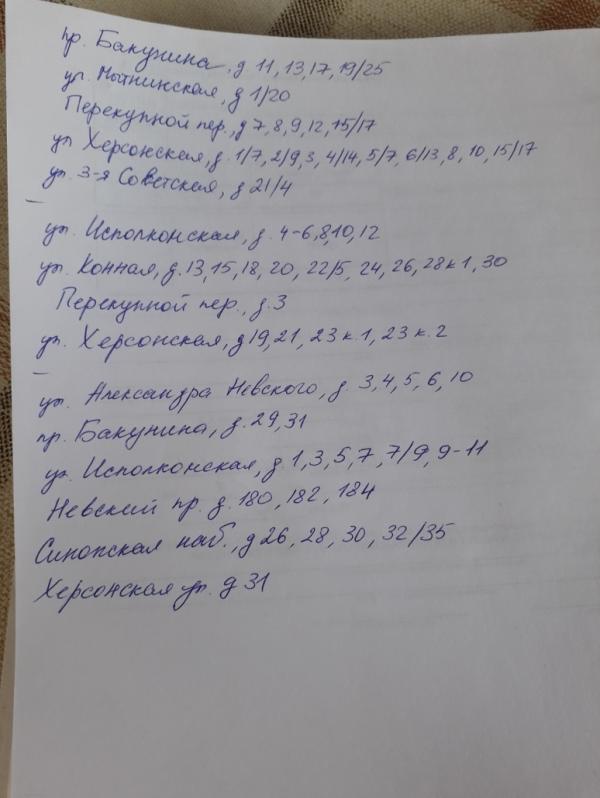 пр. Бакунина, д 11, 13, 17, 19/25
ул. Мытнинская, д 1/20
Перекупной пер., д 7, 8, 9, 12, 15/17
ул Херсонская, д. 1/7, 2/9, 3, 4/14, 5/7, 6/13, 8, 10, 15/17
ул. 3-я Советская, д 21/4
–
ул. Исполкомская, д. 4-6, 8, 10, 12
ул. Конная, д. 13, 15, 18, 20, 22/5, 24, 26, 28 к 1, 30
Перекупной пер., д. 3
ул. Херсонская, д 19, 21, 23 к. 1, 23 к. 2
–
ул. Александра Невского, д. 3, 4, 5, 6, 10
пр. Бакунина, д. 29, 31
ул. Исполкомская, д 1, 3, 5, 7, 7/9, 9-11
Невский пр. д. 180, 182, 184
Синопская наб., д 26, 28, 30, 32/35
Херсонская ул. д 31